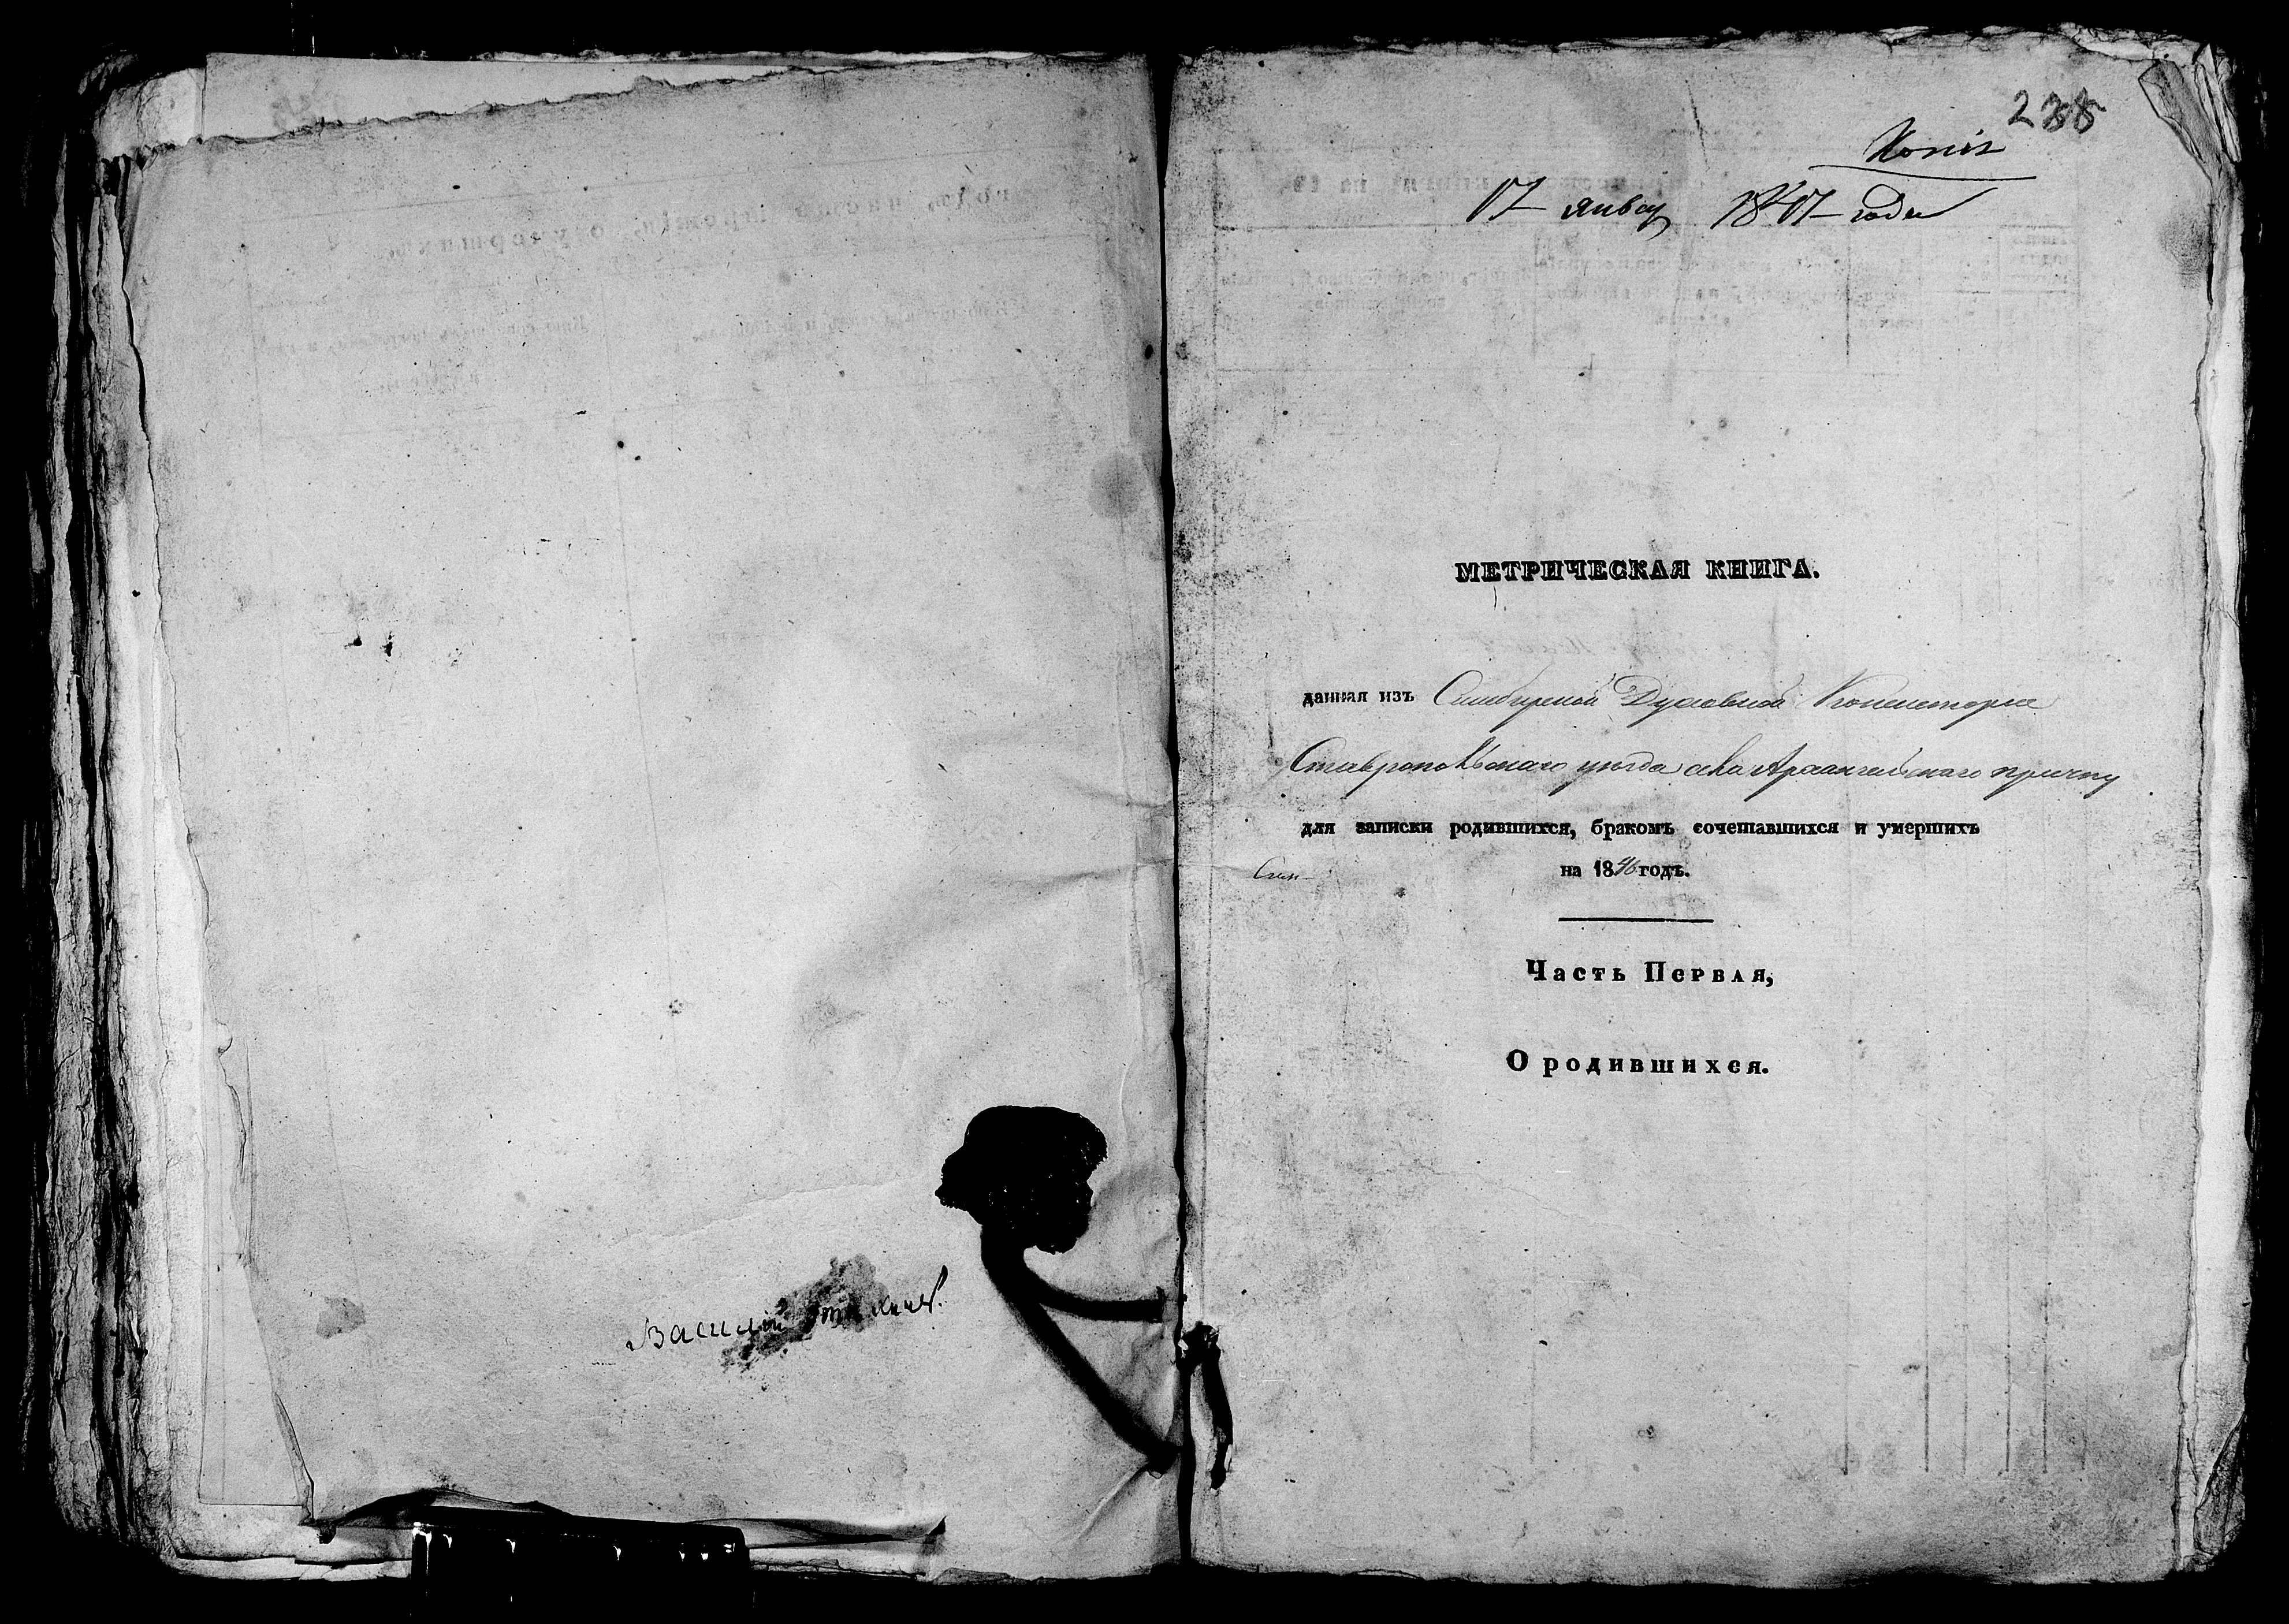 Василий
238
Копія
17 январ 1847 года
МЕТРИЧЕСКАЯ КНИГА.
данная изъ Симбирской Духовной Консисторіи
Ставропольскаго уезда села Архангельскаго причту
для записки родившихся, бракомъ сочетавшихся и умершихъ
на 1846 годъ.
Часть Первая,
О родившихся.